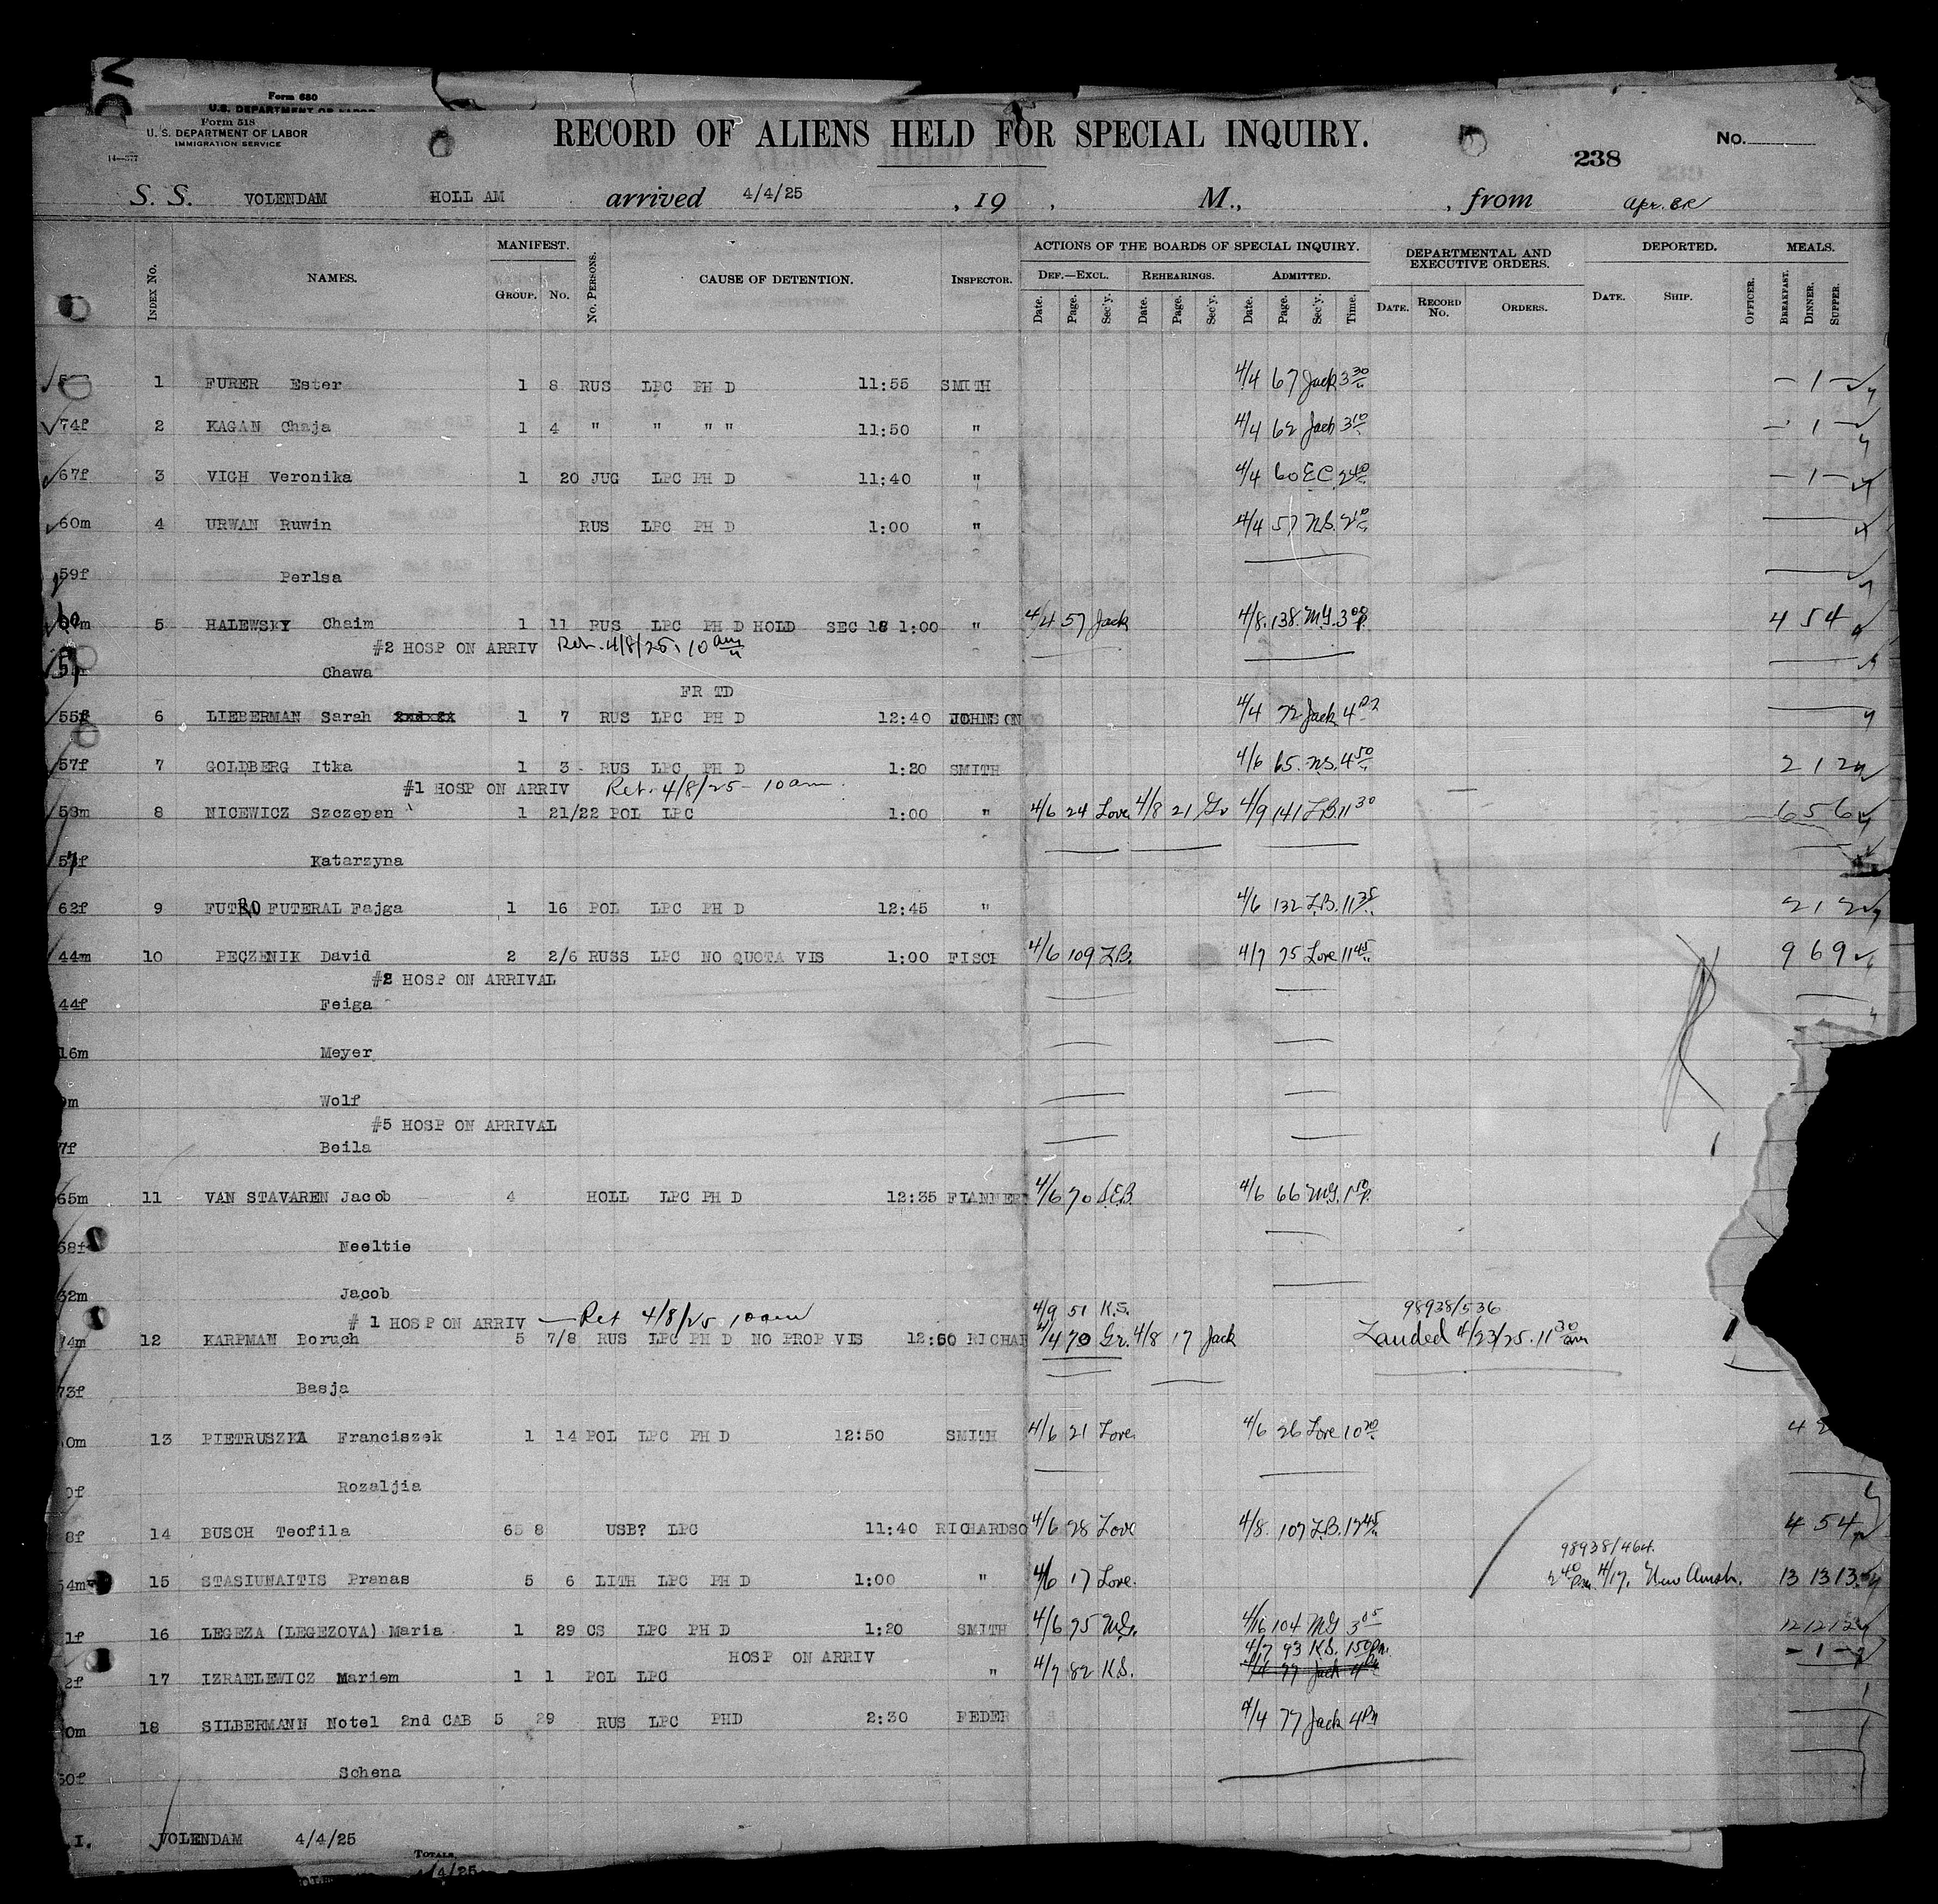 Form 680
U.S. DEPARTMENT OF LABOR
Form 518
U. S. DEPARTMENT OF LABOR
IMMIGRATION SERVICE
14—377
RECORD OF ALIENS HELD FOR SPECIAL INQUIRY.
No.
238
S. S. VOLENDAM HOLL AM arrived 4/4/25 , 19 , M., , from
Index No. NAMES. MANIFEST. GROUP. NO. No. PERSONS. CAUSE OF DETENTION. INSPECTOR. ACTIONS OF THE BOARDS OF SPECIAL INQUIRY. DEF.—EXCL. Date. Page. Sec'y. REHEARINGS. Date. Page. Sec'y. ADMITTED. Date. Page. Sec'y. Time. DEPARTMENTAL AND EXECUTIVE ORDERS. DATE. RECORD NO. ORDERS. DEPORTED. DATE. SHIP. OFFICER. MEALS. BREAKFAST. DINNER. SUPPER.
1 FURER Ester 1 8 RUS LPC PH D 11:55 SMITH 4/4 67 Jack 3 30 — 1 —
74f 2 KAGAN Chaja 1 4 " " " " 11:50 " 4/4 62 Jack 3 10 — 1 —
67f 3 VIGH Veronika 1 20 JUG LPC PH D 11:40 " 4/4 60 EC 2 40 — 1 —
60m 4 URWAN Ruwin RUS LPC PH D 1:00 " 4/4 57 N.S. 2 10
59f Perlsa
60m 5 HALEWSKY Chaim 1 11 RUS LPC PH D HOLD SEC 18 1:00 " 4/4 57 Jack 4/8 138 M.G. 3 00 P. 4 5 4
#2 HOSP ON ARRIV Ret. 4/8/25. 10 am
Chawa
FR TD
55f 6 LIEBERMAN Sarah 1 7 RUS LPC PH D 12:40 JOHNSON 4/4 72 Jack 4
57f 7 GOLDBERG Itka 1 3 RUS LPC PH D 1:20 SMITH 4/6 65 N.S. 4 50 2 1 2
#1 HOSP ON ARRIV Ret. 4/8/25 - 10 am.
58m 8 NICEWICZ Szczepan 1 21/22 POL LPC 1:00 " 4/6 24 Love 4/8 21 Gr 4/9 141 L.B. 11 30 6 5 6
57f Katarzyna
62f 9 FUTRO FUTERAL Fajga 1 16 POL LPC PH D 12:45 " 4/6 132 L.B. 11 35 2 1 2
44m 10 PECZENIK David 2 2/6 RUSS LPC NO QUOTA VIS 1:00 FISCH 4/6 109 L.B. 4/7 75 Love 11 45 9 6 9
#2 HOSP ON ARRIVAL
44f Feiga
16m Meyer
m Wolf
#5 HOSP ON ARRIVAL
7f Beila
65m 11 VAN STAVAREN Jacob 4 HOLL LPC PH D 12:35 FLANNER 4/6 70 S.E.B. 4/6 66 M.G. 1 50 P.
58f Neeltie
32m Jacob
# 1 HOSP ON ARRIV — Ret 4/8/25 10 am 4/9 51 K.S. 98938/536
74m 12 KARPMAN Boruch 5 7/8 RUS LPC PH D NO PROP VIS 12:50 RICHAR 4/4 70 Gr. 4/8 17 Jack Landed 4/23/25. 11 30 am
73f Basja
0m 13 PIETRUSZKA Franciszek 1 14 POL LPC PH D 12:50 SMITH 4/6 21 Love 4/6 26 Love 10 20 4 2
0f Rozaljia
8f 14 BUSCH Teofila 65 8 USB? LPC 11:40 RICHARDSO 4/6 28 Love 4/8 107 L.B. 12 45 4 5 4
98938/464.
54m 15 STASIUNAITIS Pranas 5 6 LITH LPC PH D 1:00 " 4/6 17 Love. 2 40 Pm. 4/17, New Amst. 13 13 13
1f 16 LEGEZA (LEGEZOVA) Maria 1 29 CS LPC PH D 1:20 SMITH 4/6 75 M.G. 4/16 104 MG 3 05 12 12 12
HOSP ON ARRIV 4/7 93 K.S. 1 50 Pm. — 1 —
2f 17 IZRAELEWICZ Mariem 1 1 POL LPC " 4/7 82 K.S. 4/4 77 Jack 4 Pm
0m 18 SILBERMANN Notel 2nd CAB 5 29 RUS LPC PHD 2:30 FEDER 4/4 77 Jack 4 Pm
50f Schena
I. VOLENDAM 4/4/25
TOTALS
4/4/25